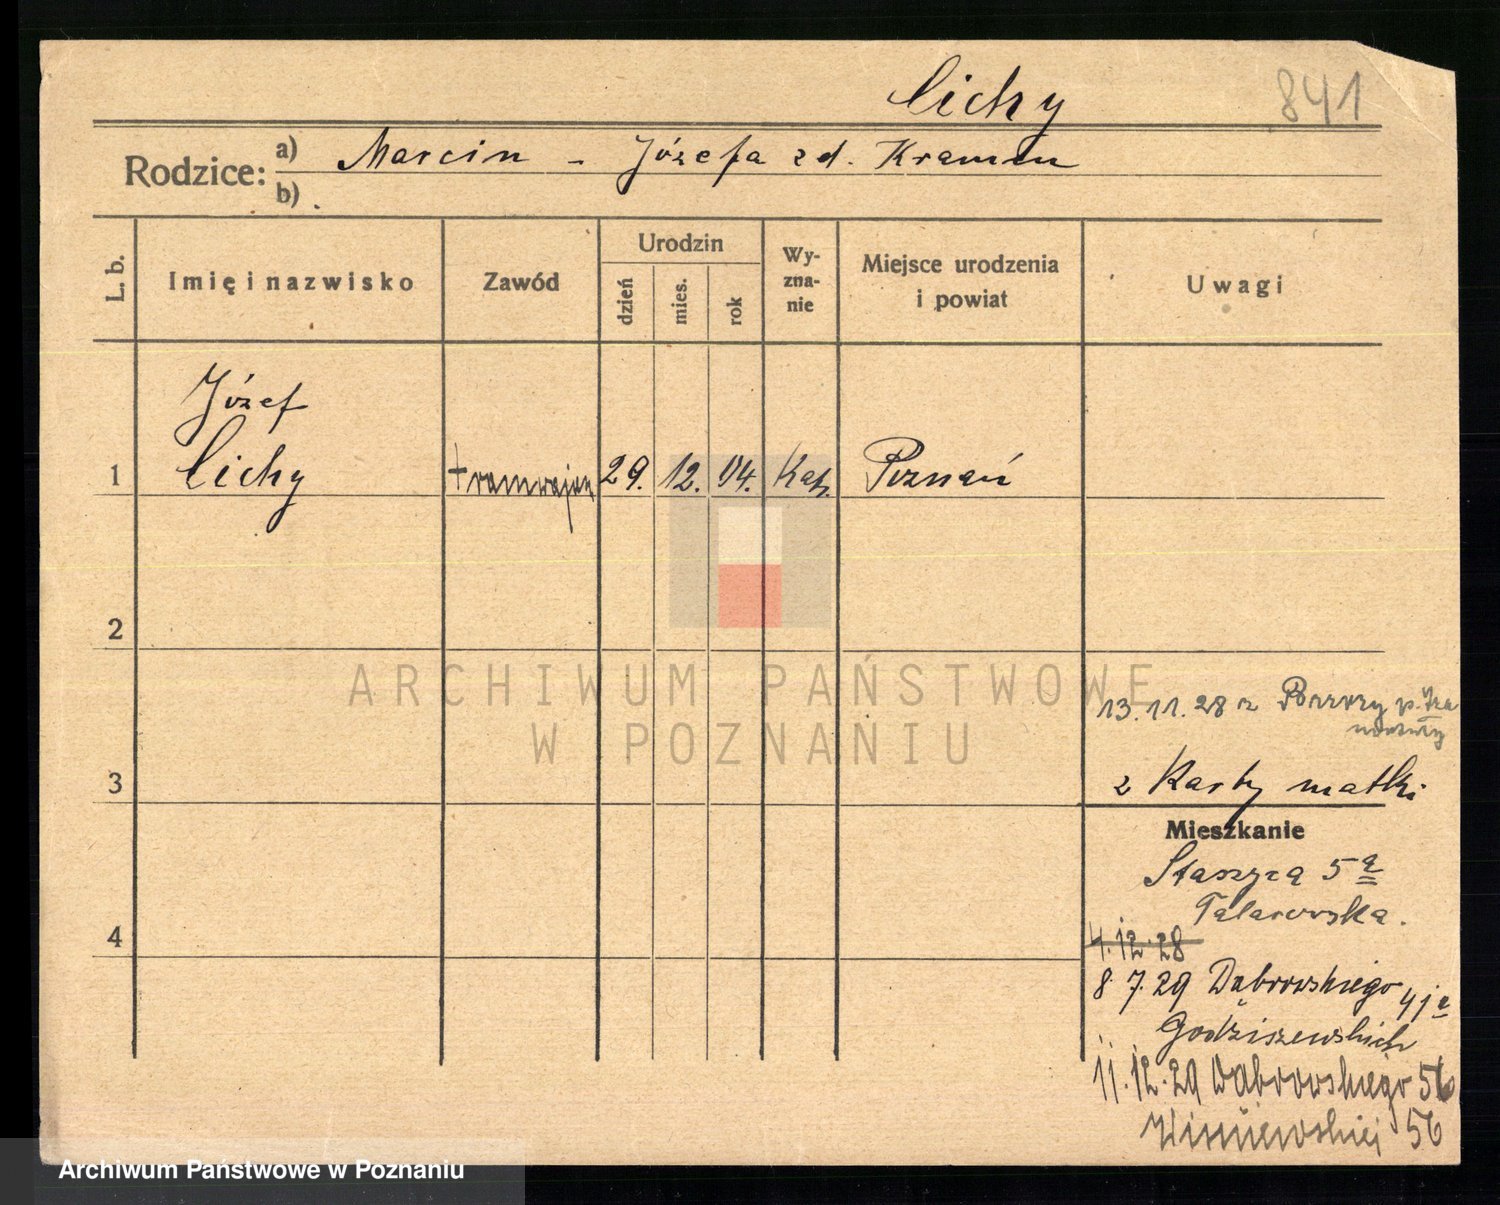 Cichy 841
Rodzice: a) Marcin - Józefa zd. Kramem
b)
L. b. Imię i nazwisko Zawód Urodzin dzień mies. rok Wyzna- nie Miejsce urodzenia i powiat Uwagi
Józef
1 Cichy tramwajarz 29. 12. 04. Kat. Poznań
2
ARCHIWUM PAŃSTWOWE
W POZNANIU
13.11.28 z
3 z Karty matki
Mieszkanie
Staszyca 5a
Talarowska.
4 4.12.28
8.7.29 Dąbrowskiego
Godziszewskich
11.12.29 Dąbrowskiego 56
Wiśniewskiej 56
Archiwum Państwowe w Poznaniu